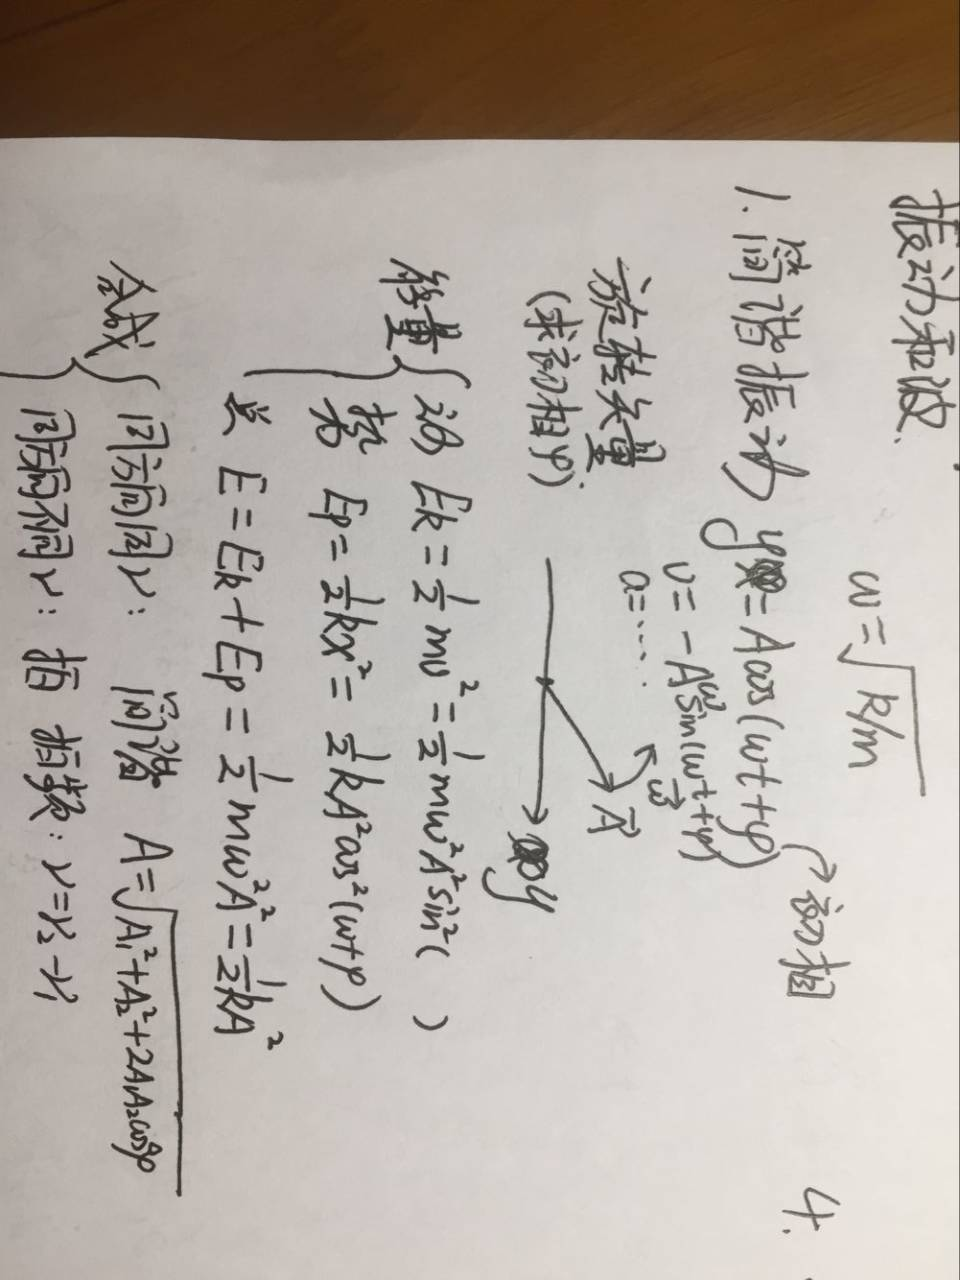 振动和波.
ω=√k/m
1.简谐振动 y=Acos(ωt+φ) →初相
v=-Aωsin(ωt+φ)
a=....
旋转矢量
(求初相φ).
ω
A
y
能量 { 动 Ek=½mv²=½mω²A²sin²( )
势 Ep=½kx²=½kA²cos²(ωt+φ)
总 E=Ek+Ep=½mω²A²=½kA²
合成 { 同方向同ν: 简谐 A=√A₁²+A₂²+2A₁A₂cosφ
同方向不同ν: 拍 拍频:ν=ν₂-ν₁
4.